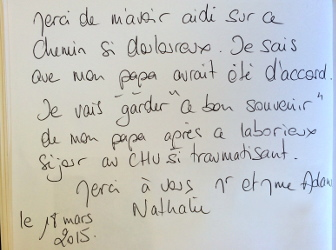 Merci de m'avoir aidé sur ce
Chemin si douloureux. Je sais
que mon papa aurait été d'accord.
Je vais garder "ce bon souvenir"
de mon papa après ce laborieux
séjour au CHU si traumatisant.
Merci à vous Mr et Mme Adam
Nathalie
le 18 mars
2015.